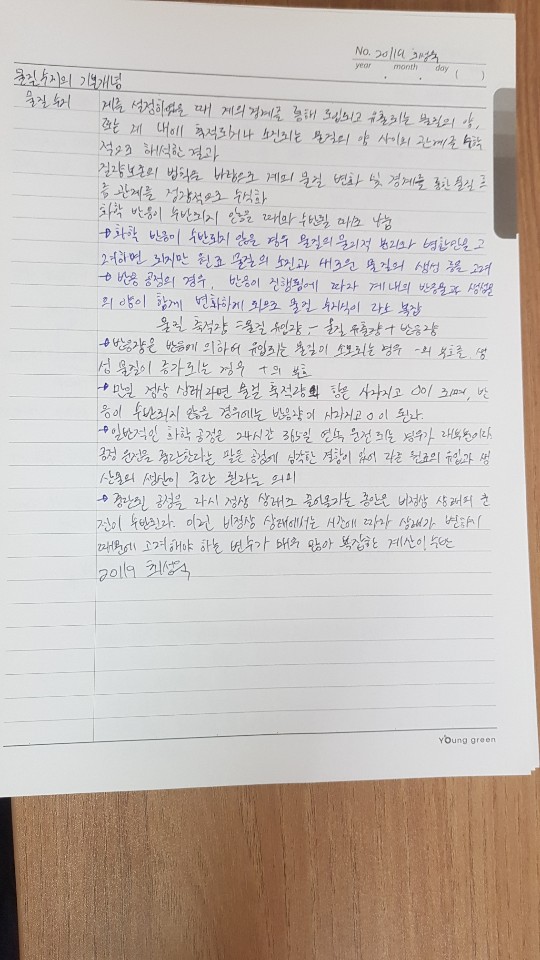 No. 20119 최성욱
year . month . day ( )
물질수지의 기본개념
물질수지
계를 설정하였을 때 계의 경계를 통해 도입되고 유출되는 물질의 양,
또는 계 내에 축적되거나 소진되는 물질의 양 사이의 관계를 수학
적으로 해석한 결과
질량보존의 법칙을 바탕으로 계의 물질 변화 및 경계를 통한 물질 흐
름 관계를 정량적으로 수식화
화학 반응이 수반되지 않을 때와 수반될 때로 나눔
→ 화학 반응이 수반되지 않을 경우 물질의 물리적 분리와 변화만을 고
려하면 되지만 원료 물질의 소진과 새로운 물질의 생성 등을 고려
→ 반응 공정의 경우, 반응이 진행됨에 따라 계 내의 반응물과 생성물
의 양이 함께 변화하게 되므로 물질 수지식이 다소 복잡
물질 축적량 = 물질 유입량 - 물질 유출량 + 반응량
→ 반응량은 반응에 의하여 유입되는 물질이 소모되는 경우 -의 부호로 생
성 물질이 증가되는 경우 +의 부호
→ 만일 정상 상태라면 물질 축적량 항은 사라지고 0이 되며, 반
응이 수반되지 않을 경우에는 반응량이 사라지고 0이 된다.
→ 일반적인 화학 공정은 24시간 365일 연속 운전되는 경우가 대부분이다.
공정 운전을 중단한다는 말은 공정에 심각한 결함이 있어 각종 원료의 유입과 생
산물의 생산이 중단 된다는 의미
→ 중단된 공정을 다시 정상 상태로 끌어올리는 동안은 비정상 상태의 운
전이 수반된다. 이런 비정상 상태에서는 시간에 따라 상태가 변하기
때문에 고려해야 하는 변수가 매우 많아 복잡한 계산이 수반
20119 최성욱
Young green